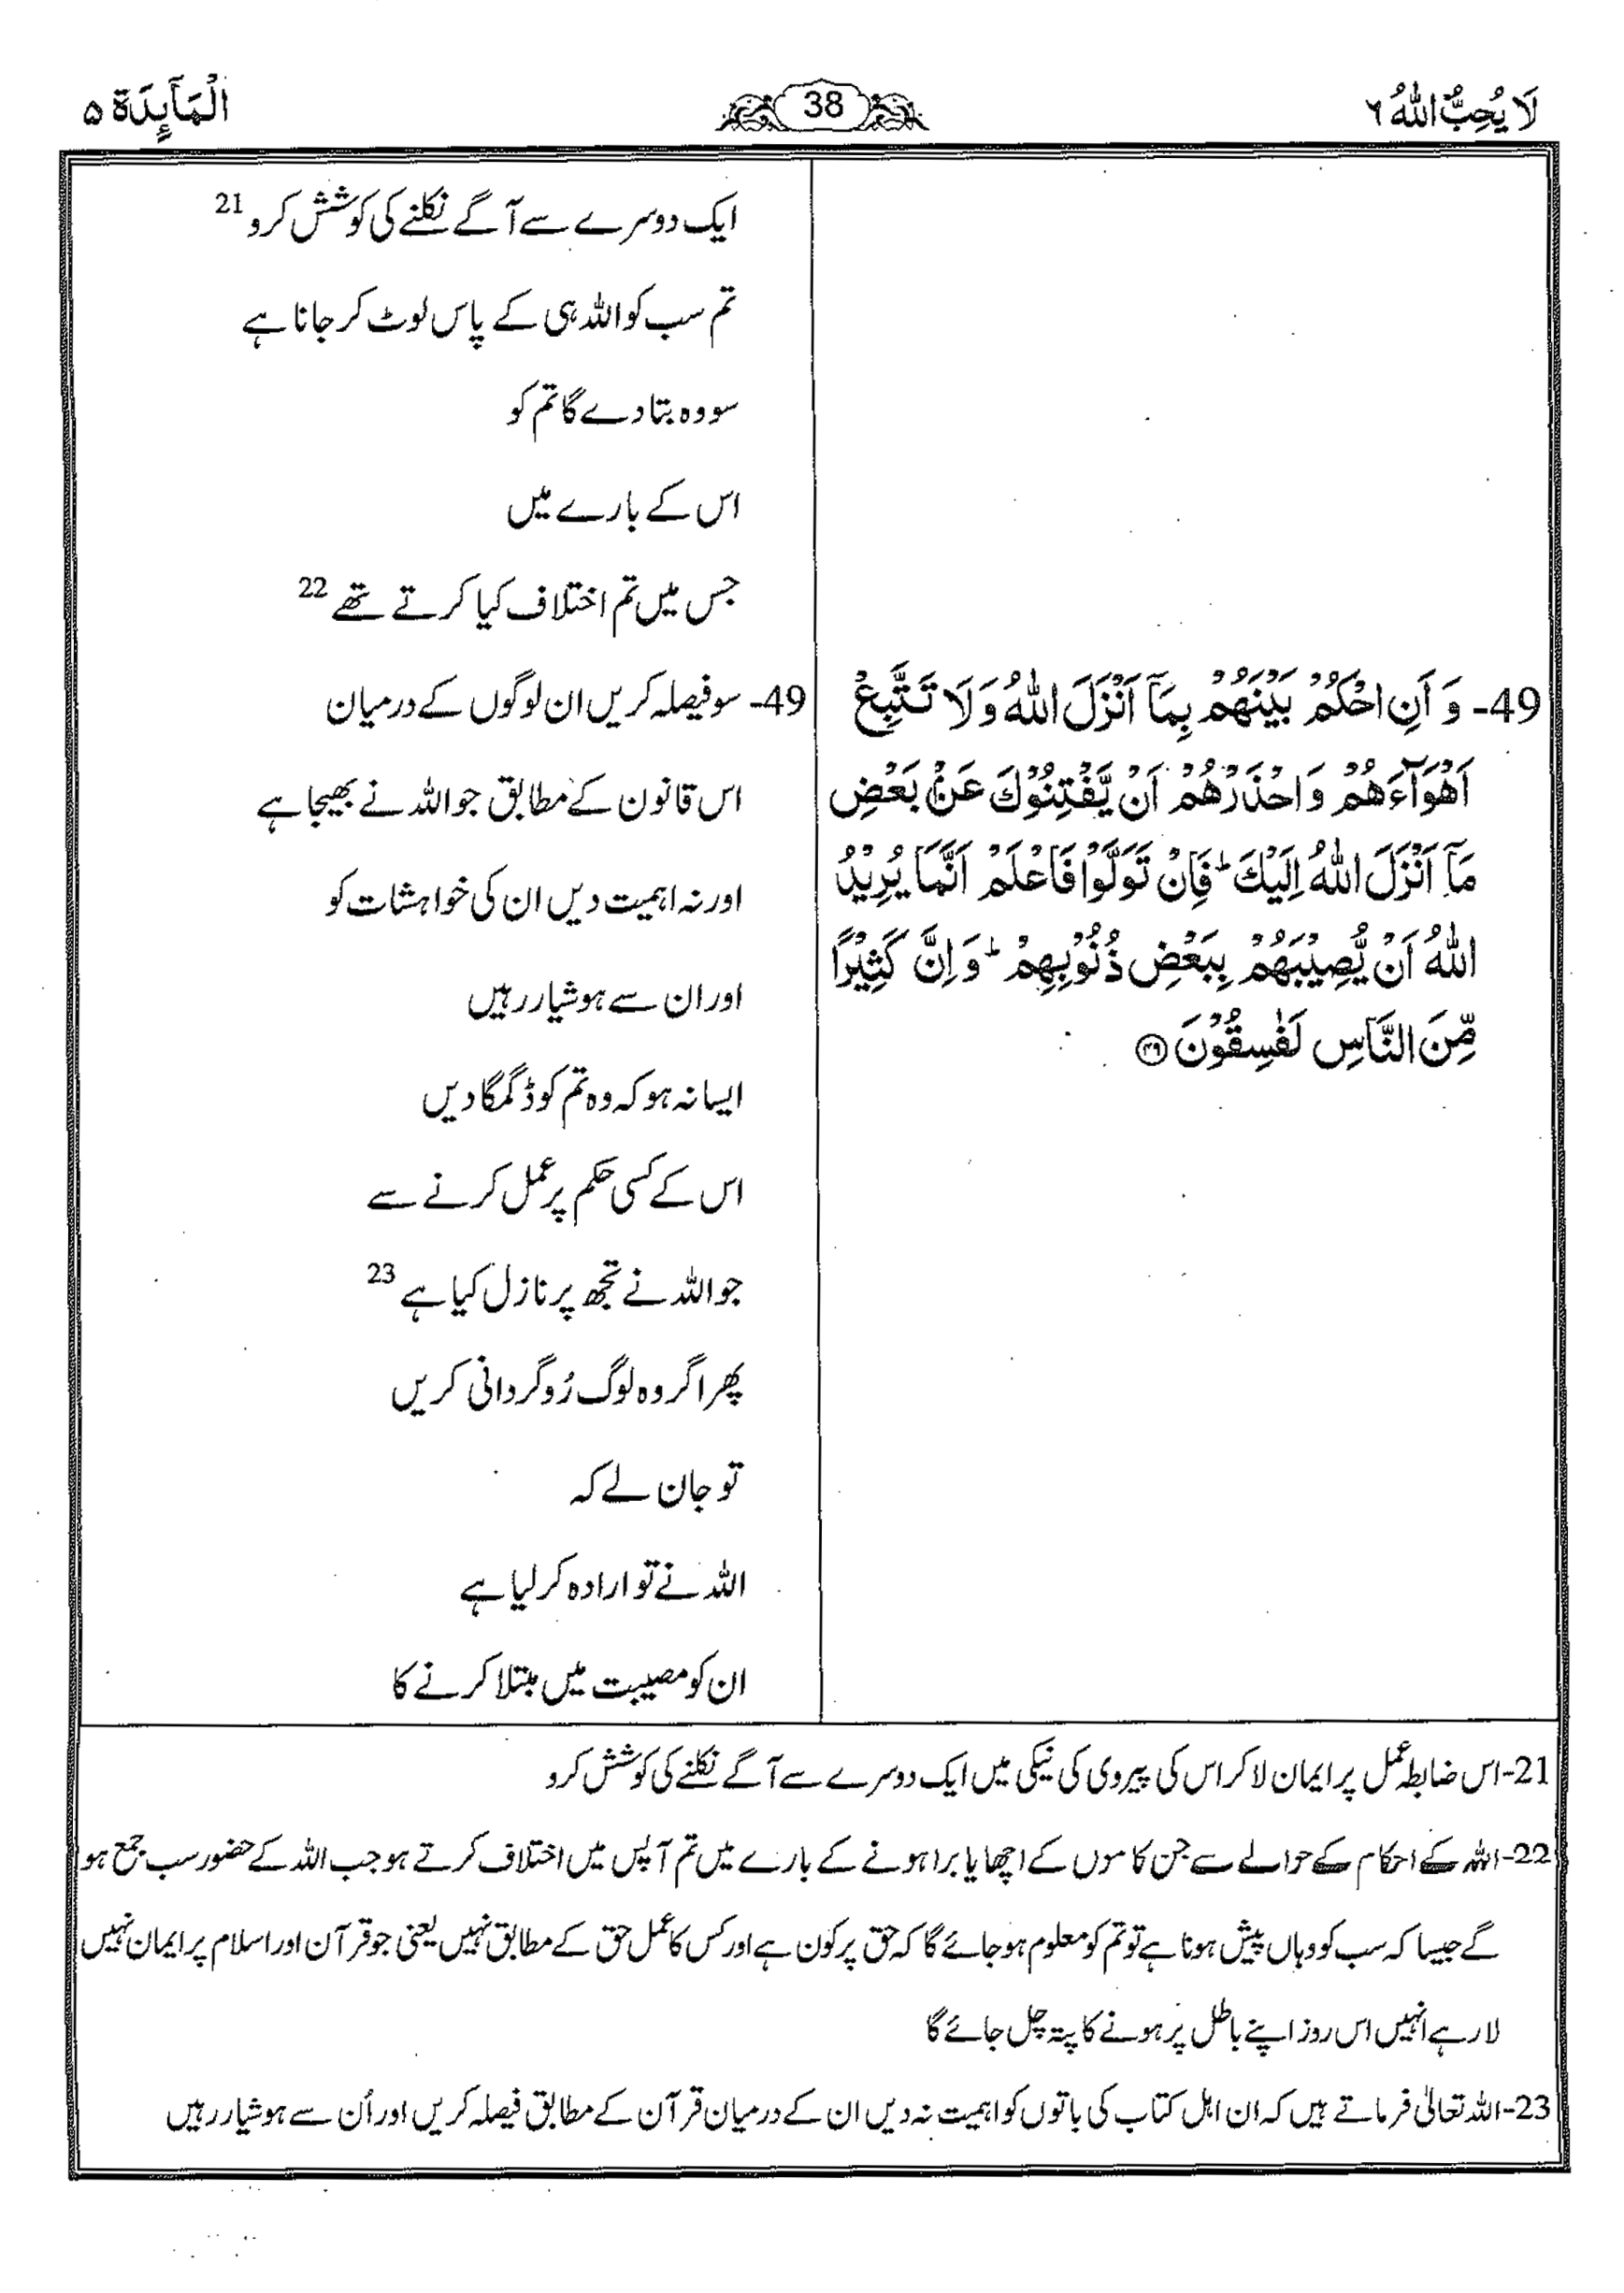 لَا يُحِبُّ اللّٰهُ ٦
38
الْمَآىِٕدَة ٥
ایک دوسرے سے آگے نکلنے کی کوشش کرو 21
تم سب کو اللہ ہی کے پاس لوٹ کر جانا ہے
سو وہ بتا دے گا تم کو
اس کے بارے میں
جس میں تم اختلاف کیا کرتے تھے 22
49- وَ اَنِ احْكُمْ بَيْنَهُمْ بِمَآ اَنْزَلَ اللّٰهُ وَ لَا تَتَّبِعْ
اَهْوَآءَهُمْ وَ احْذَرْهُمْ اَنْ يَّفْتِنُوْكَ عَنْۢ بَعْضِ
مَآ اَنْزَلَ اللّٰهُ اِلَيْكَ ؕ فَاِنْ تَوَلَّوْا فَاعْلَمْ اَنَّمَا يُرِيْدُ
اللّٰهُ اَنْ يُّصِيْبَهُمْ بِبَعْضِ ذُنُوْبِهِمْ ؕ وَ اِنَّ كَثِيْرًا
مِّنَ النَّاسِ لَفٰسِقُوْنَ ۴۹
49- سو فیصلہ کریں ان لوگوں کے درمیان
اس قانون کے مطابق جو اللہ نے بھیجا ہے
اور نہ اہمیت دیں ان کی خواہشات کو
اور ان سے ہوشیار رہیں
ایسا نہ ہو کہ وہ تم کو ڈگمگا دیں
اس کے کسی حکم پر عمل کرنے سے
جو اللہ نے تجھ پر نازل کیا ہے 23
پھر اگر وہ لوگ رُوگردانی کریں
تو جان لے کہ
اللہ نے تو ارادہ کر لیا ہے
ان کو مصیبت میں مبتلا کرنے کا
21- اس ضابطہ عمل پر ایمان لا کر اس کی پیروی کی نیکی میں ایک دوسرے سے آگے نکلنے کی کوشش کرو
22- اللہ کے احکام کے حوالے سے جن کاموں کے اچھا یا برا ہونے کے بارے میں تم آپس میں اختلاف کرتے ہو جب اللہ کے حضور سب جمع ہو
گے جیسا کہ سب کو وہاں پیش ہونا ہے تو تم کو معلوم ہو جائے گا کہ حق پر کون ہے اور کس کا عمل حق کے مطابق نہیں یعنی جو قرآن اور اسلام پر ایمان نہیں
لا رہے انہیں اس روز اپنے باطل پر ہونے کا پتہ چل جائے گا
23- اللہ تعالیٰ فرماتے ہیں کہ ان اہل کتاب کی باتوں کو اہمیت نہ دیں ان کے درمیان قرآن کے مطابق فیصلہ کریں اور اُن سے ہوشیار رہیں